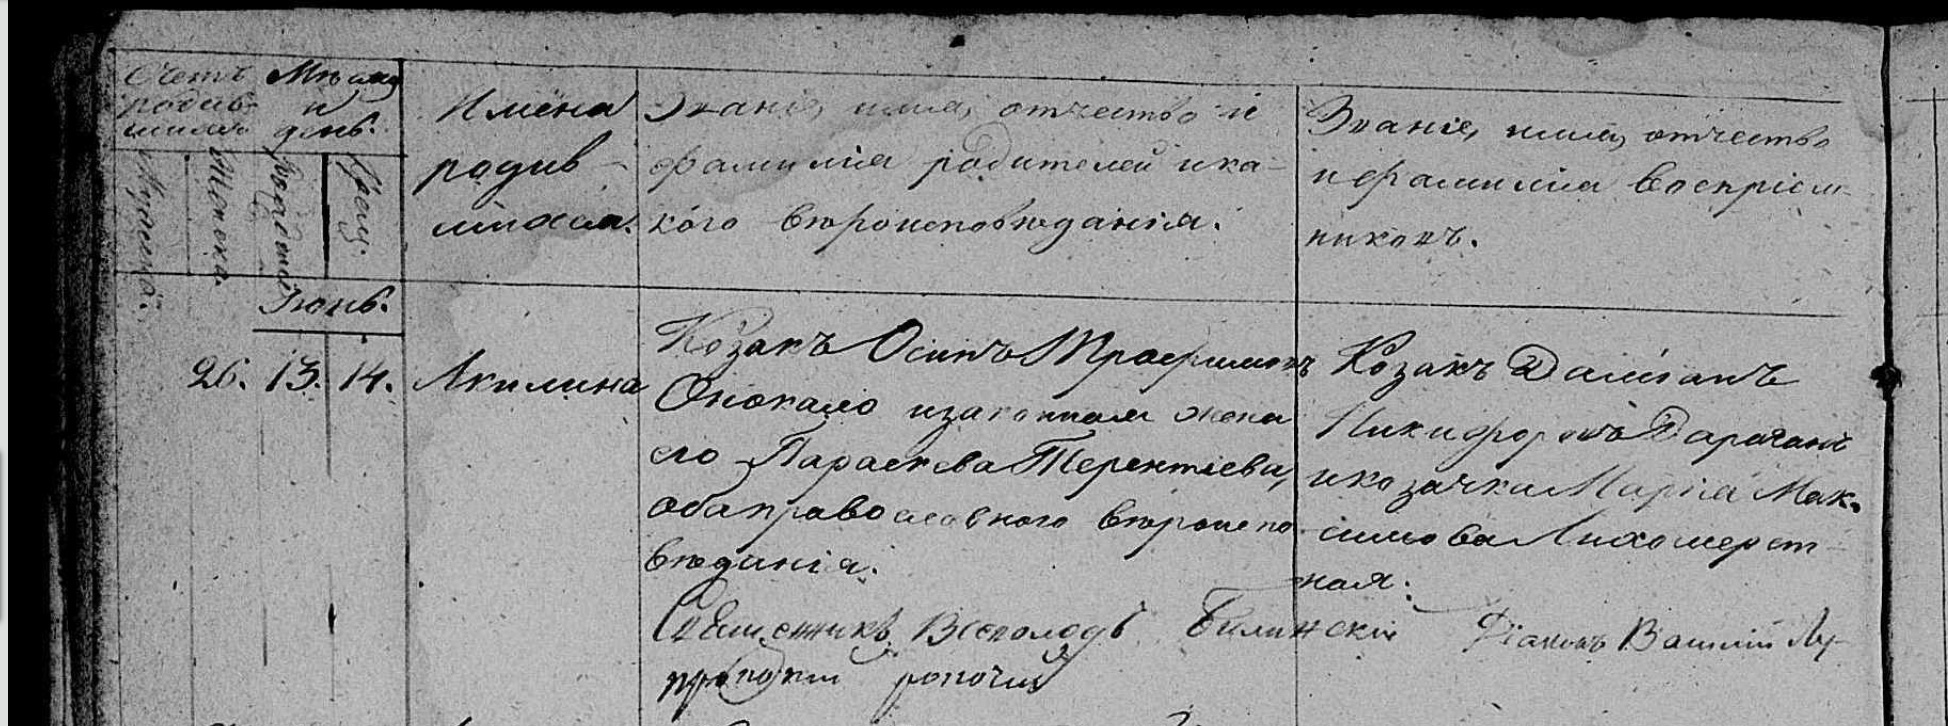 Счетъ родив-
шихся
Мужеска.
Женска.
Мѣсяц
и
день.
Рожденія
Крещ.
Имена
родив-
шихся.
Званіе, имя, отчество и
фамилія родителей и ка-
кого вѣроисповѣданія.
Званіе, имя, отчество
и фамилія воспріем-
никовъ.
Іюнь.
26. 13. 14. Акилина
Козакъ Осипъ Трофимовъ
и законная жена
его Параскева Терентіева,
оба православного вѣроиспо-
вѣданія.
Козакъ Даміанъ
Никифоровъ Дараганъ
и козачка Марія Мак-
симова Лихомерет-
ная.
Священникъ Всеволодъ Билинскій Діаконъ Василій